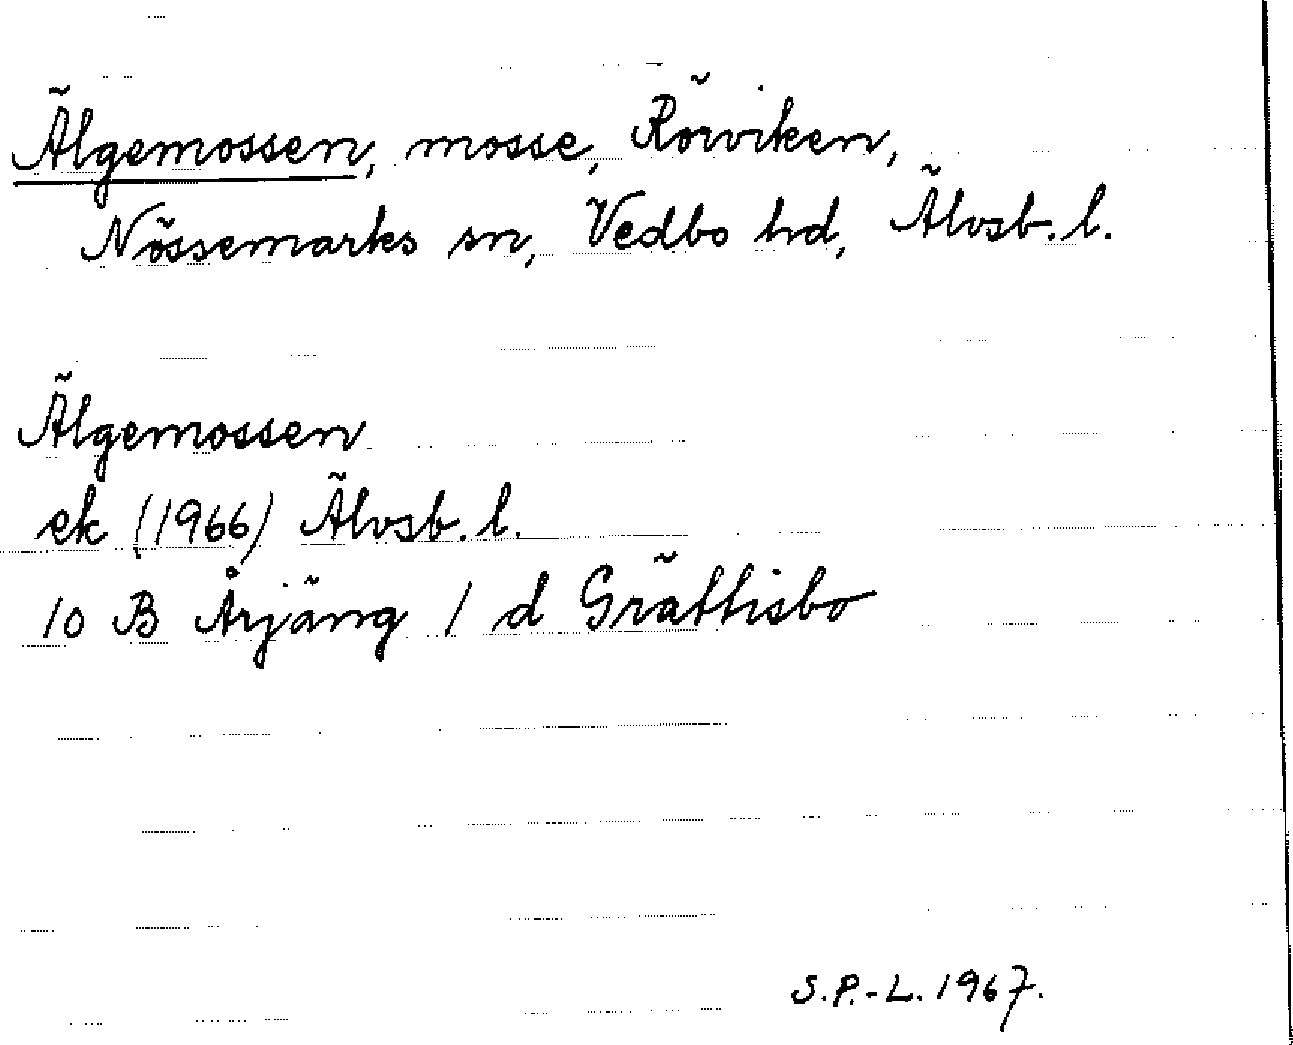 Älgemossen, mosse, Rörviken,
Nössemarks sn, Vedbo hd, Älvsb. l.
Älgemossen
ek (1966) Älvsb. l.
10 B Årjäng 1 d Grättisbo
S.P.-L. 1967.